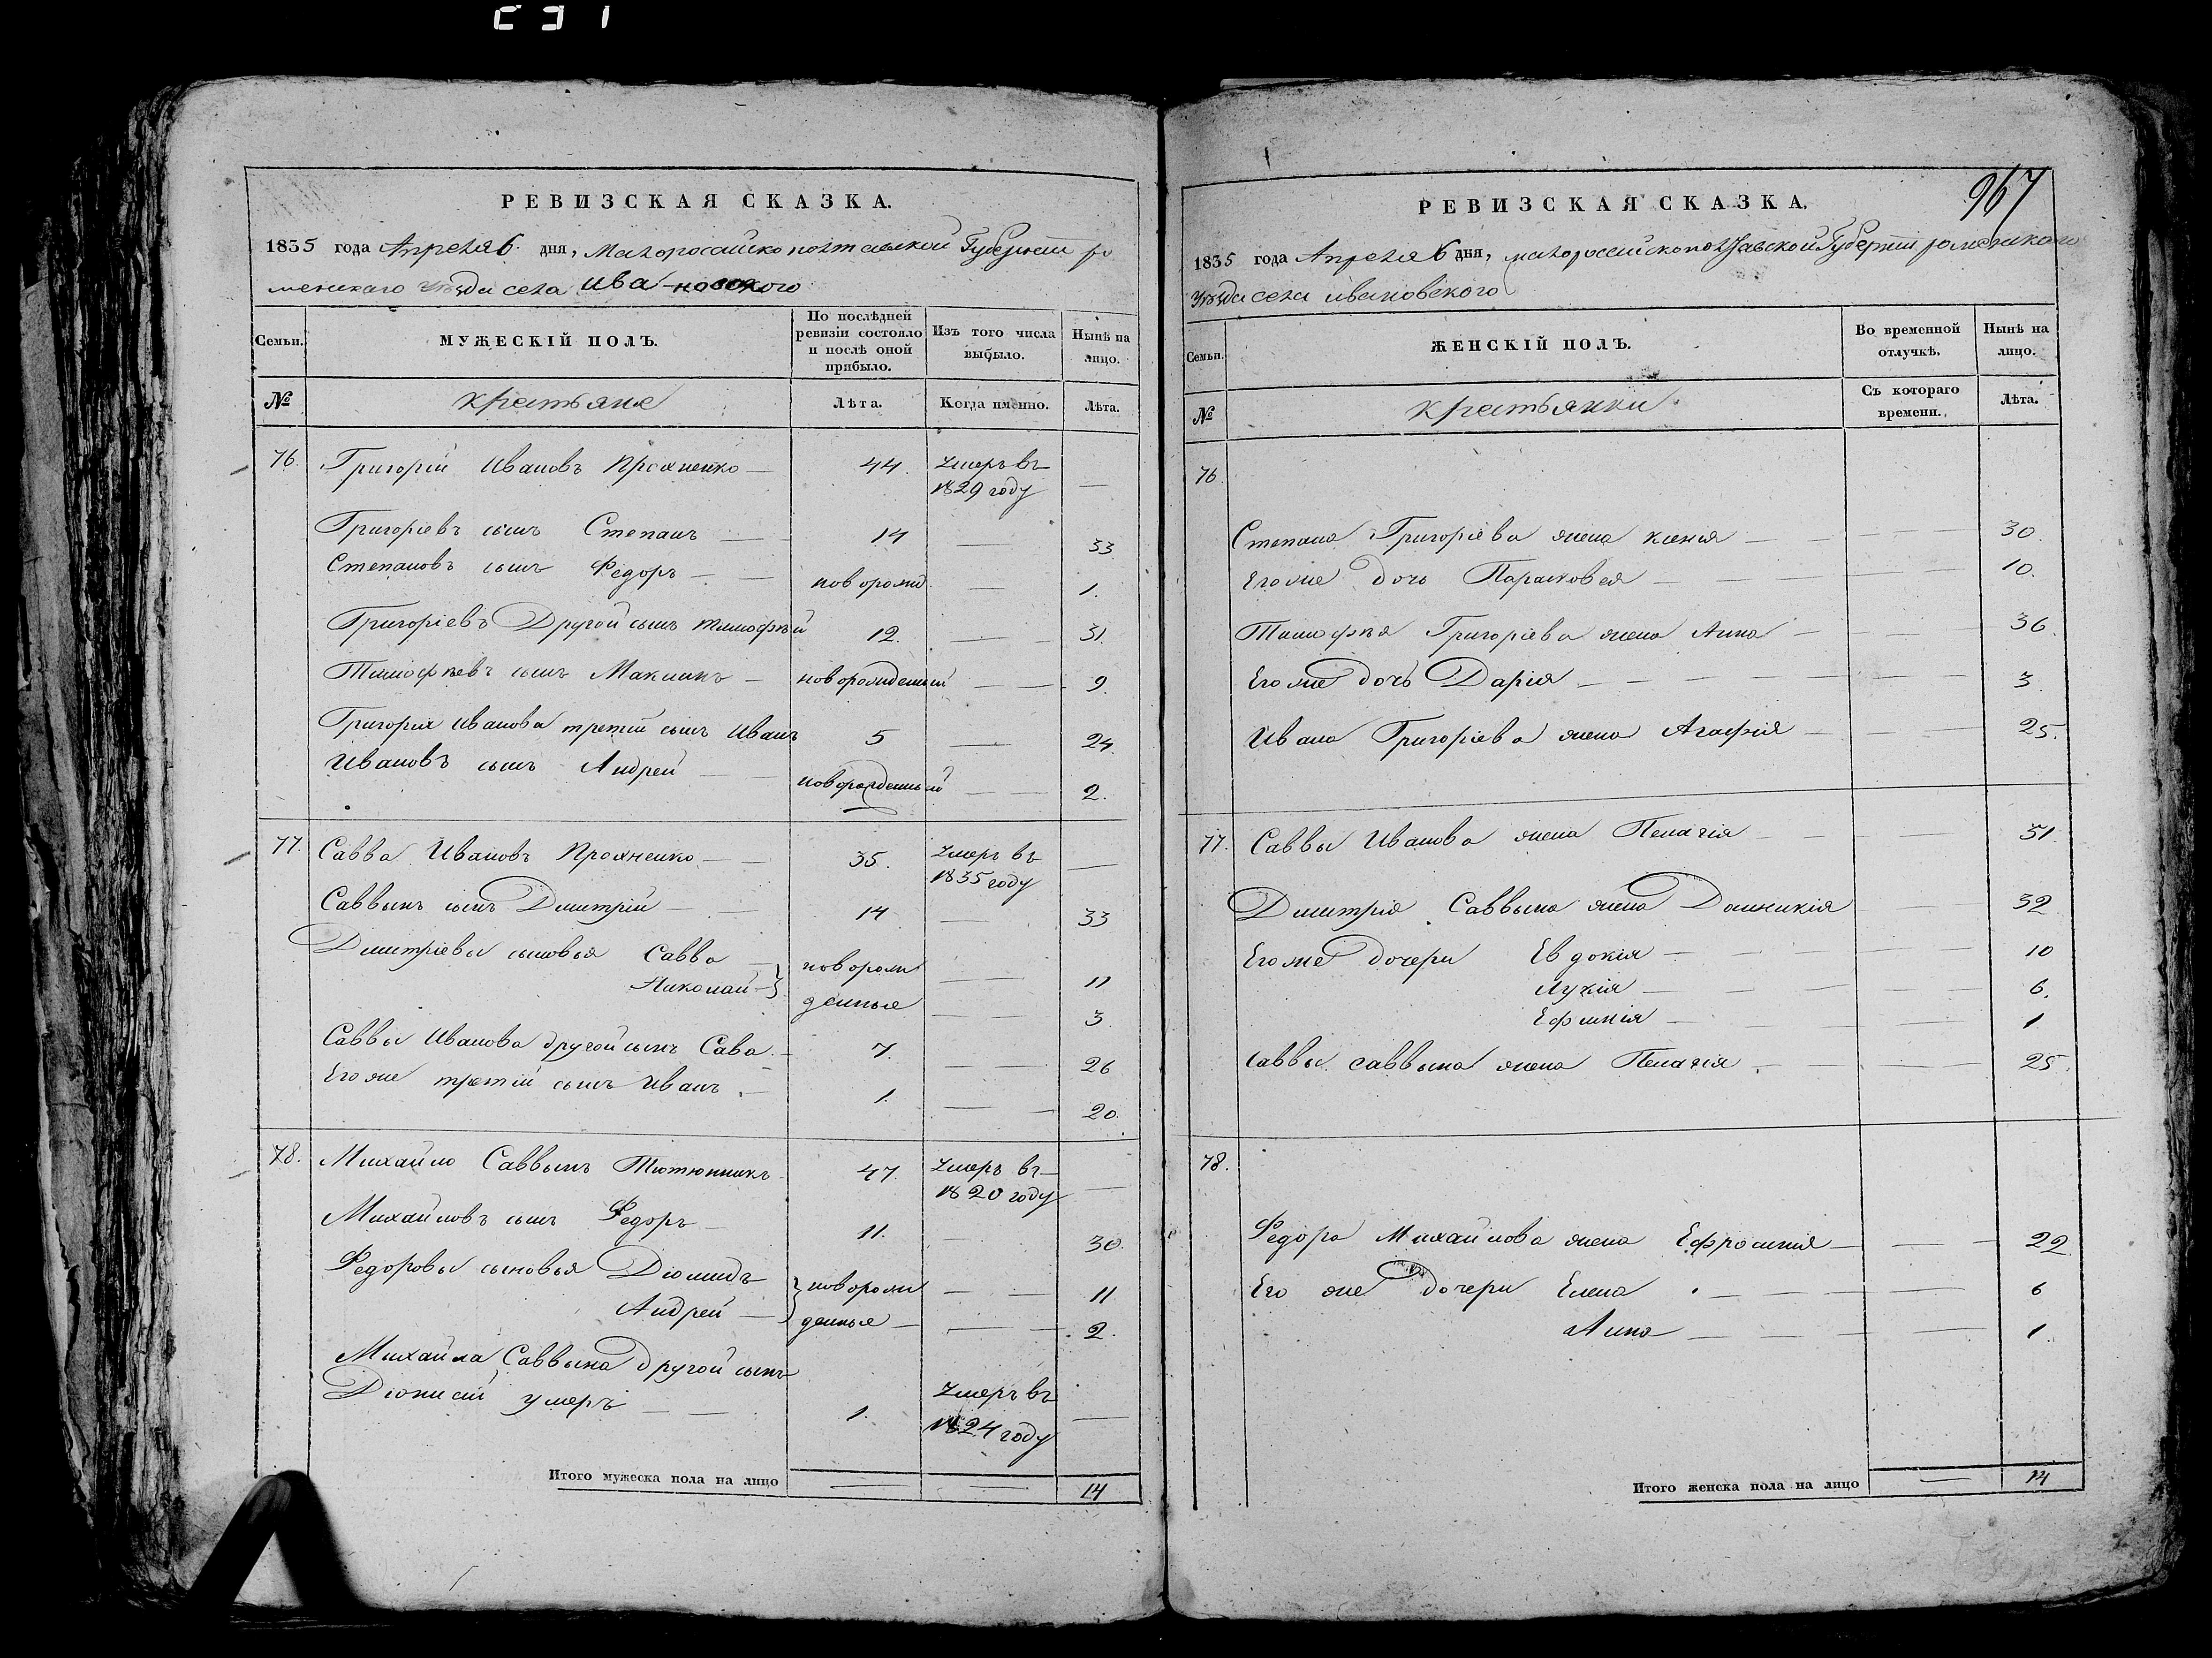 РЕВИЗСКАЯ СКАЗКА.
1835 года Апреля 6. дня, Малоросийско полтавской Губернии ро
менскаго Уѣзда села ива-новского
Семьи.
МУЖЕСКІЙ ПОЛЪ.
По послѣдней ревизіи состояло и послѣ оной прибыло.
Изъ того числа выбыло.
Нынѣ на лицо.
№
крестьяне
Лѣта.
Когда именно.
Лѣта.
76. Григорій Ивановъ Прохненко — 44. умеръ въ 1829 году —
Григоріевъ сынъ Степанъ — 14 — 33
Степановъ сынъ Федоръ — — новорожд. — 1.
Григоріевъ Другой сынъ тимофѣй 12. — 31.
Тимофѣевъ сынъ Максимъ — новорожденый — 9.
Григорія Иванова третій сынъ Иванъ 5 — 24
Ивановъ сынъ Андрей — новорожденный — 2.
77. Савва Ивановъ Прохненко — 35. умеръ въ 1835 году —
Саввынъ сынъ Дмитрій — 14 — 33
Дмитріевы сыновья Савва — новорож — 11
Николай — денные — 3
Саввы Иванова другой сынъ Сава. — 7. — 26
Его же третій сынъ Иванъ. — 1. — 20.
78. Михайло Саввынъ Тютюнникъ 47. умеръ въ 1820 году —
Михайловъ сынъ Федоръ — 11. — 30.
Федоровы сыновья Діомидъ новорож — 11
Андрей — денные — 2.
Михайла Саввына другой сынъ
Діонисій умеръ — — 1. умеръ въ 1824 году —
Итого мужеска пола на лицо — — 14
967
РЕВИЗСКАЯ СКАЗКА.
1835 года Апреля 6 дня, малороссийскополтавской Губерніи роменскаго
Уѣзда села ивановского
Семьи.
ЖЕНСКІЙ ПОЛЪ.
Во временной отлучкѣ.
Нынѣ на лицо.
№
крестьянки
Съ котораго времени.
Лѣта.
76.
Степана Григоріева жена ксенія — 30.
Его же дочь Парасковея — 10.
Тимофѣя Григоріева жена Анна — 36.
Его же дочь Дарія — 3.
Ивана Григоріева жена Агафія — 25.
77. Саввы Иванова жена Пелагія — 51.
Дмитрія Саввына жена Домникія 32
Его же дочери Евдокія — 10
Лукія — 6.
Ефимія — 1
Саввы саввына жена Пелагія — 25.
78.
Федора Михайлова жена Ефросинія — 22
Его же дочери Елена — 6
Анна — 1.
Итого женска пола на лицо — 14